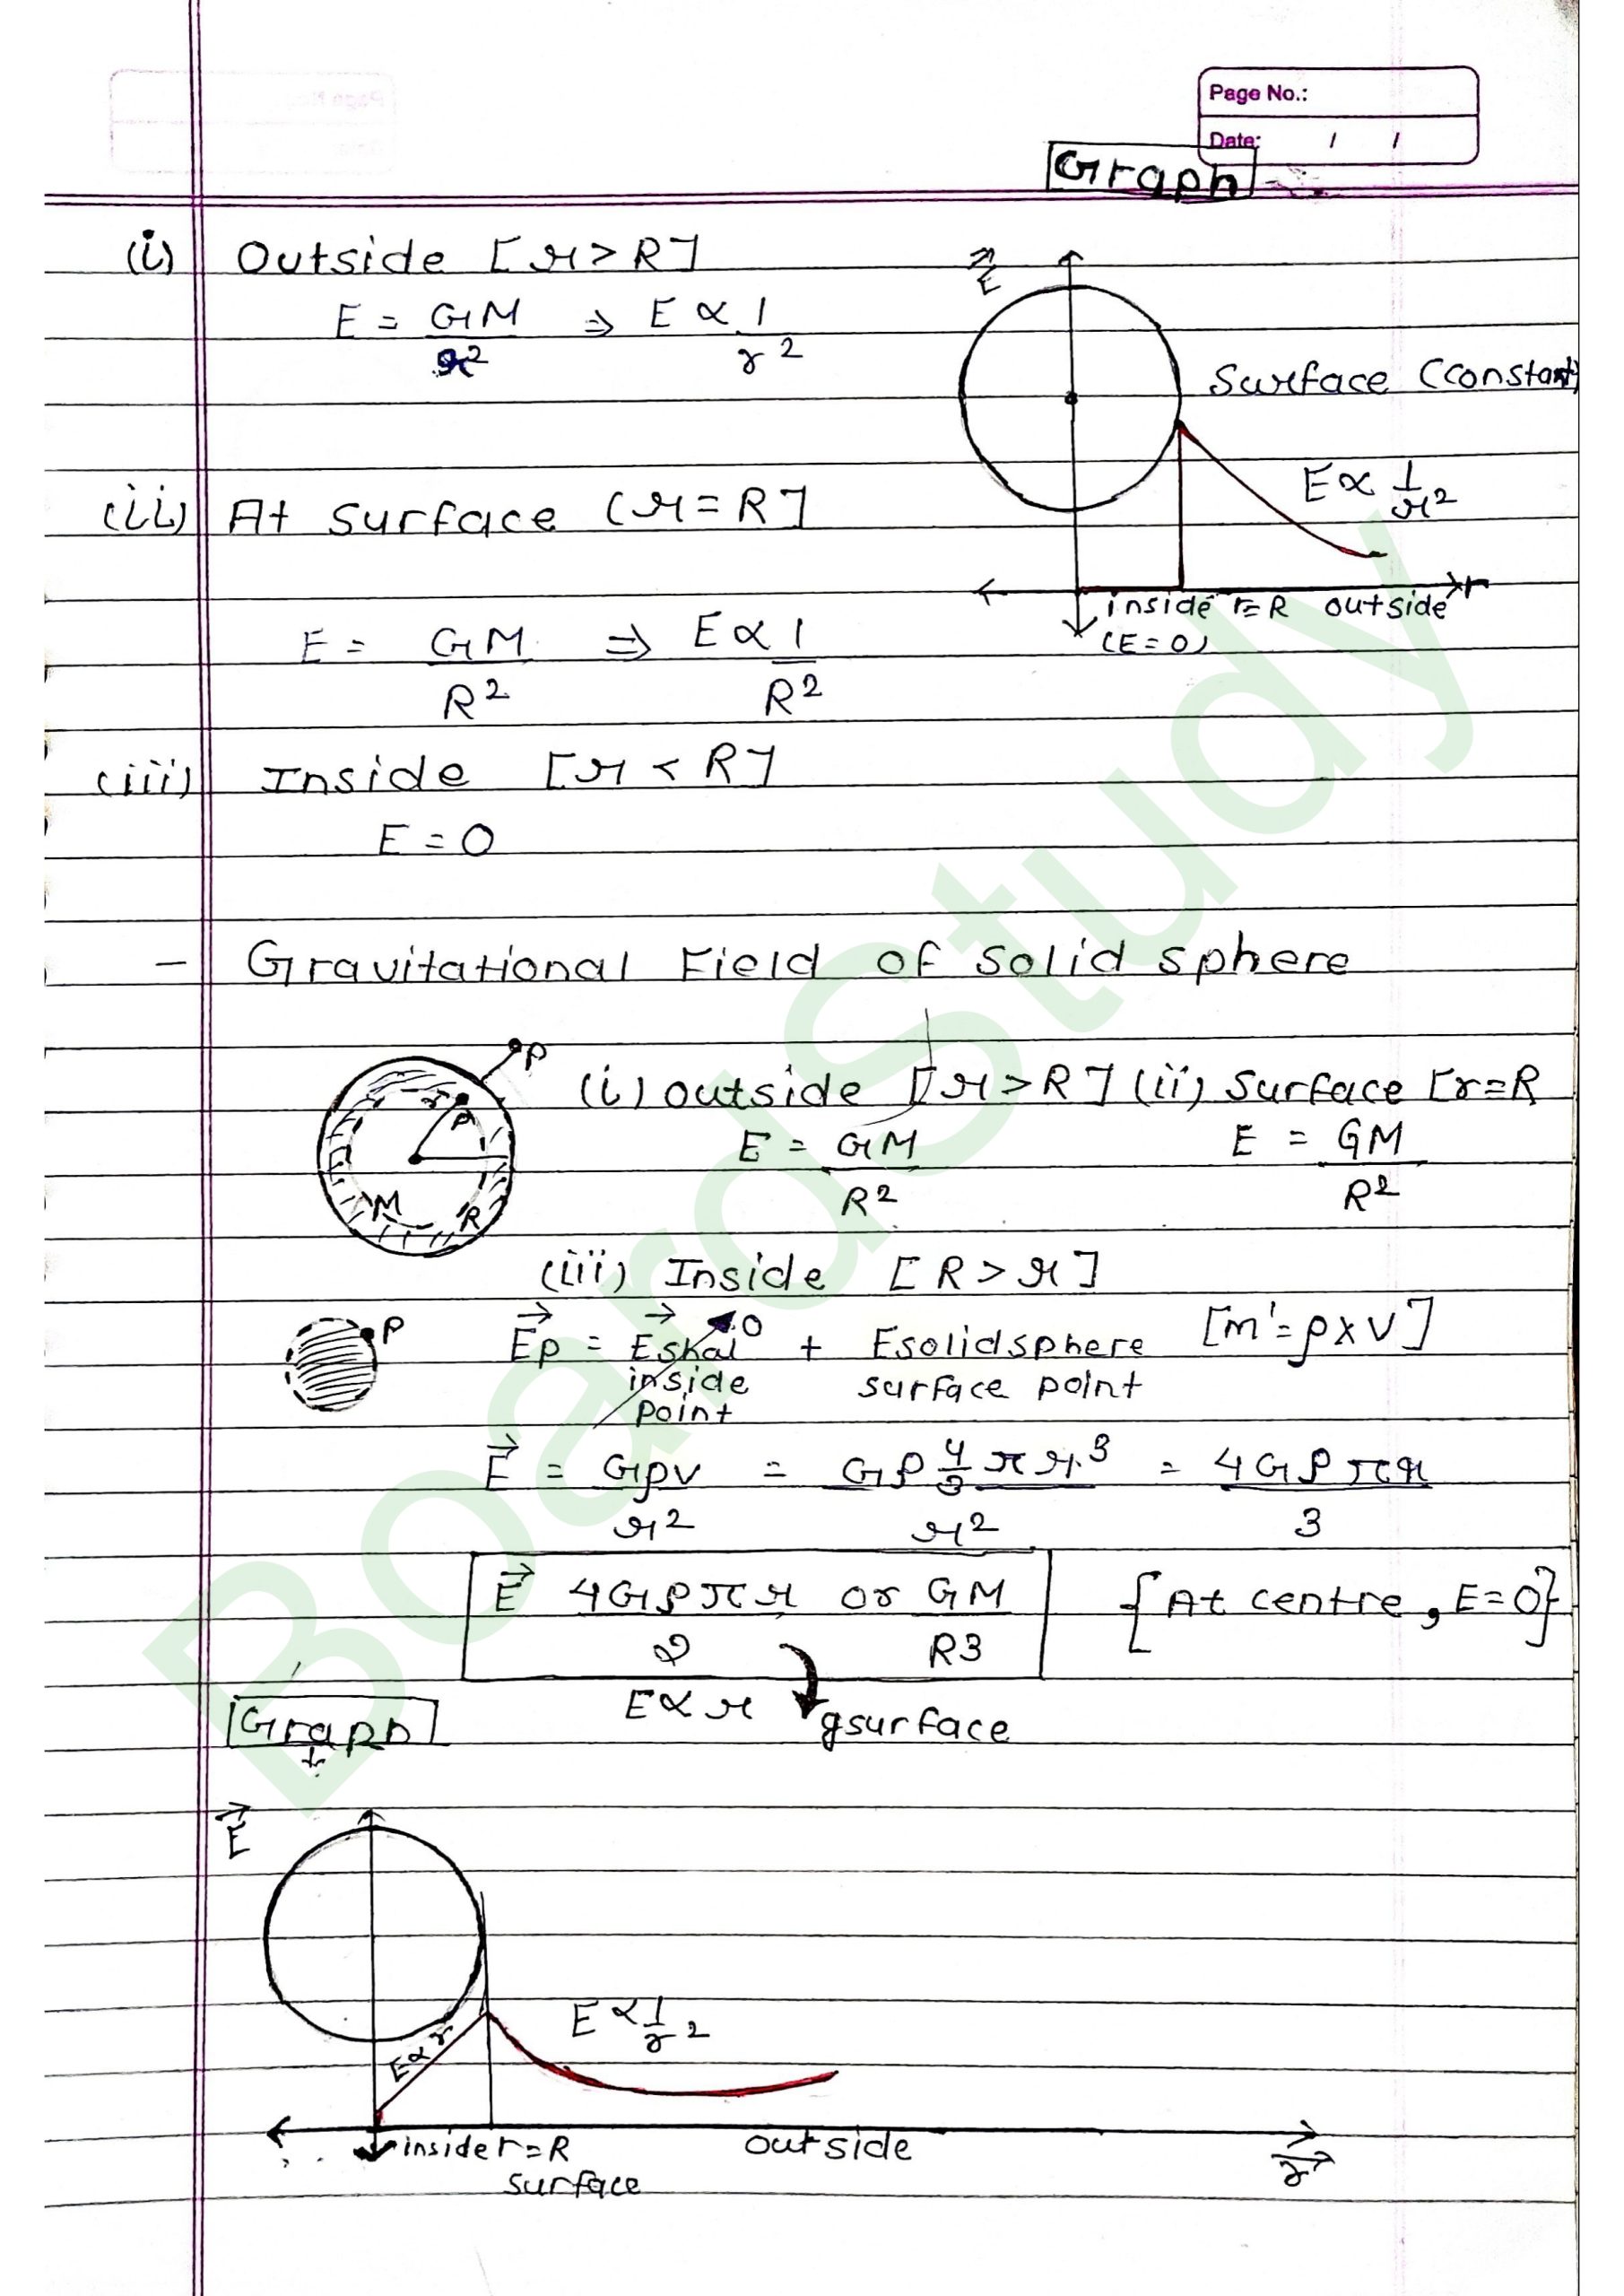 Page No.:
Date: / /
Graph
(i) Outside [r>R]
E = GM/r² ⇒ E ∝ 1/r²
E
Surface (constant)
E ∝ 1/r²
inside r=R outside r
(E=0)
(ii) At surface (r=R]
E = GM/R² ⇒ E ∝ 1/R²
(iii) Inside [r < R]
E = 0
- Gravitational Field of solid sphere
P
r P
M R
(i) outside [r>R] (ii) Surface [r=R
E = GM/R² E = GM/R²
(iii) Inside [R>r]
P
Ep = Eshal 0 + Esolidsphere [m'=ρxv]
inside surface point
point
E = Gρv/r² = Gρ 4/3 πr³/r² = 4Gρπr/3
E 4Gρπr/2 or GM/R3 {At centre, E=0}
E∝r gsurface
Graph
E
E∝r
E∝1/r²
inside r=R outside r
surface
BoardStudy